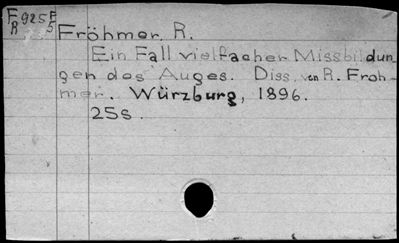 F925F
R 5
Fröhmer, R.
Ein Fall vielfacher Missbildun
gen des Auges. Diss. von R. Froh-
mer. Würzburg, 1896.
25s.